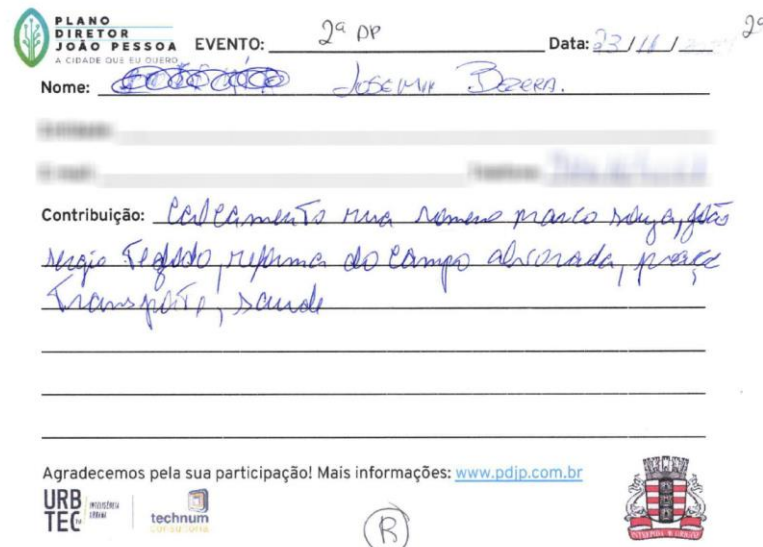 PLANO
DIRETOR
JOÃO PESSOA
A CIDADE QUE EU QUERO
EVENTO: 2ª DP Data: 23/11/
2ª
Nome: JOSEMIR BEZERA.
Contribuição: Calcamento rua romero marco souza, João
sergio, reforma do campo alvorada, praça
Transporte, saude
Agradecemos pela sua participação! Mais informações: www.pdjp.com.br
URB
TEC
INTELIGÊNCIA
URBANA
technum
consultoria
R